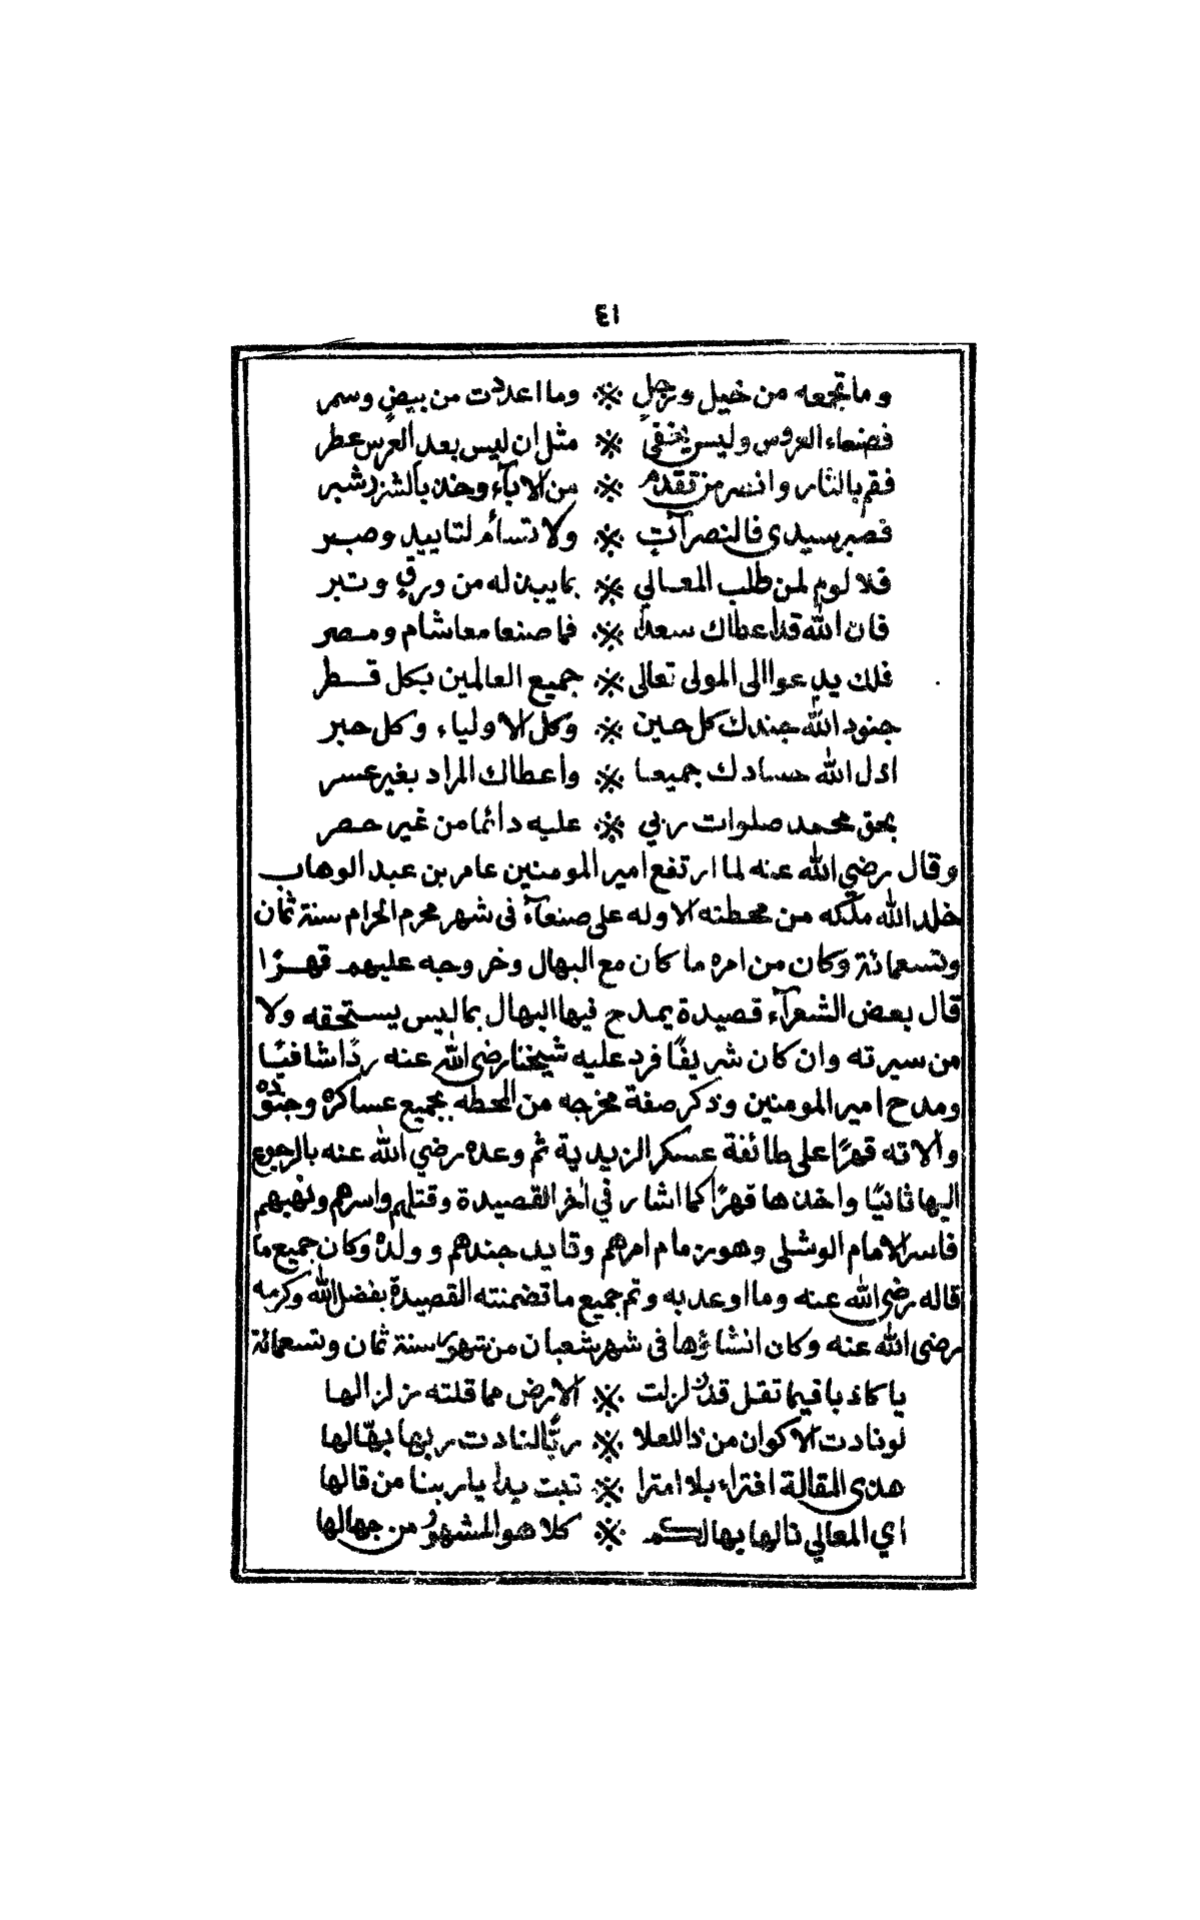 ٤١
وما تجمعه من خيل ورجل ※ وما اعددت من بيض وسمر
فصنعاء العروس وليس يخفى ※ مثل ان ليس بعد العرس عطر
فقم بالثار وانسر من تقدم ※ من الآباء وخذ بالشزر شبر
فصبر سيدي فالنصر آت ※ ولا تسأم لتاييد وصبر
فلا لوم لمن طلب المعالي ※ بما يبذله من ورق وتبر
فان الله قد اعطاك سعدا ※ فما صنعا معا شام ومصر
فلك يدعوا الى المولى تعالى ※ جميع العالمين بكل قطر
جنود الله جندك كل حين ※ وكل الاولياء وكل حبر
اذل الله حسادك جميعا ※ واعطاك المراد بغير عسر
بحق محمد صلوات ربي ※ عليه دائما من غير حصر
وقال رضي الله عنه لما ارتفع امير المومنين عامر بن عبد الوهاب
خلد الله ملكه من محطته الاوله على صنعآء فى شهر محرم الحرام سنة ثمان
وتسعمائة وكان من امره ما كان مع البهال وخروجه عليهم قهرًا
قال بعض الشعرآء قصيدة يمدح فيها البهال بما ليس يستحقه ولا
من سيرته وان كان شريفًا فرد عليه شيخنا رضي الله عنه ردًا شافيًا
ومدح امير المومنين وذكر صفة مخرجه من المحطه بجميع عساكره وجنوده
والاته قهرًا على طائفة عسكر الزيدية ثم وعده رضي الله عنه بالرجوع
اليها ثانيًا واخذها قهرًا كما اشار في اخر القصيدة وقتلهم واسرهم ونهبهم
فاسر الامام الوشلى وهو زمام امرهم وقايد جندهم وولده وكان جميع ما
قاله رضي الله عنه وما اوعد به وتم جميع ما تضمنته القصيدة بفضل الله وكرمه
رضى الله عنه وكان انشاؤها فى شهر شعبان من شهور سنة ثمان وتسعمائة
يا كاذبا فيما تقل قد زلزلت ※ الارض مما قلته زلزالها
لو نادت الاكوان من ذا للعلا ※ ربًا لنادت ربها بهّالها
هذى المقالة افتراء بلا امترا ※ تبت يدا يا ربنا من قالها
اي المعالي نالها بهالكم ※ كلا هو المشهور من جهالها